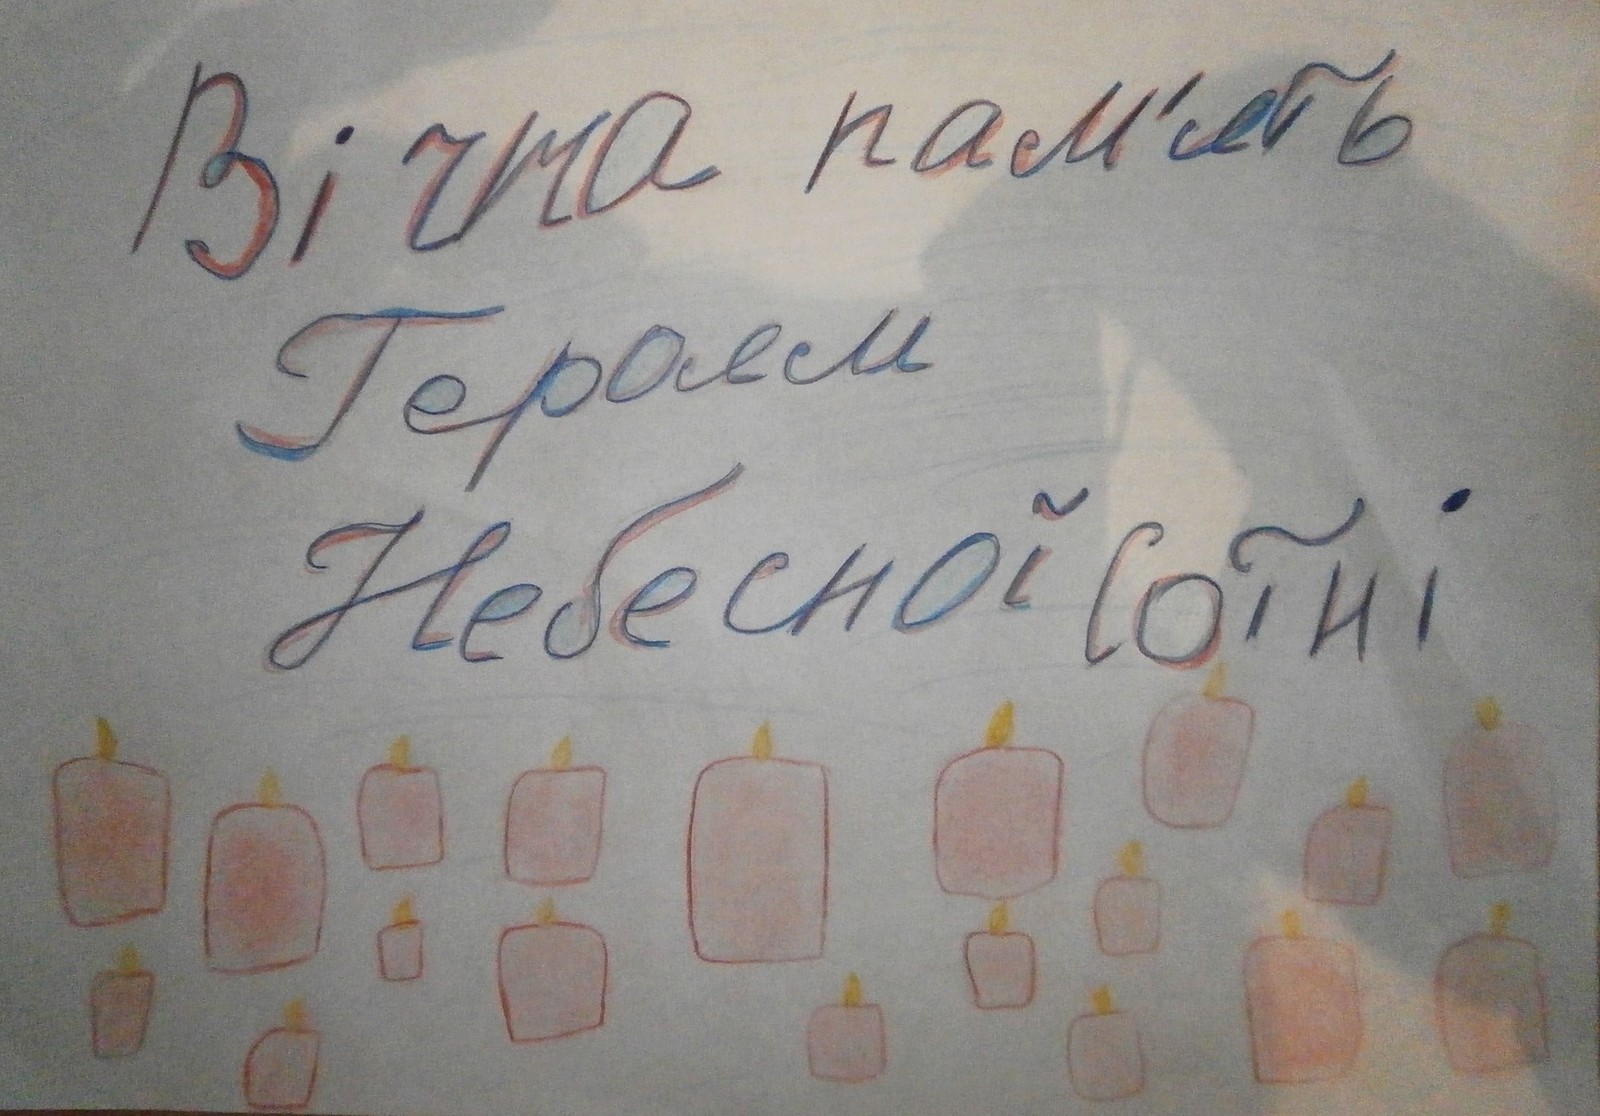 Вічна пам'ять
Героям
Небесної Сотні